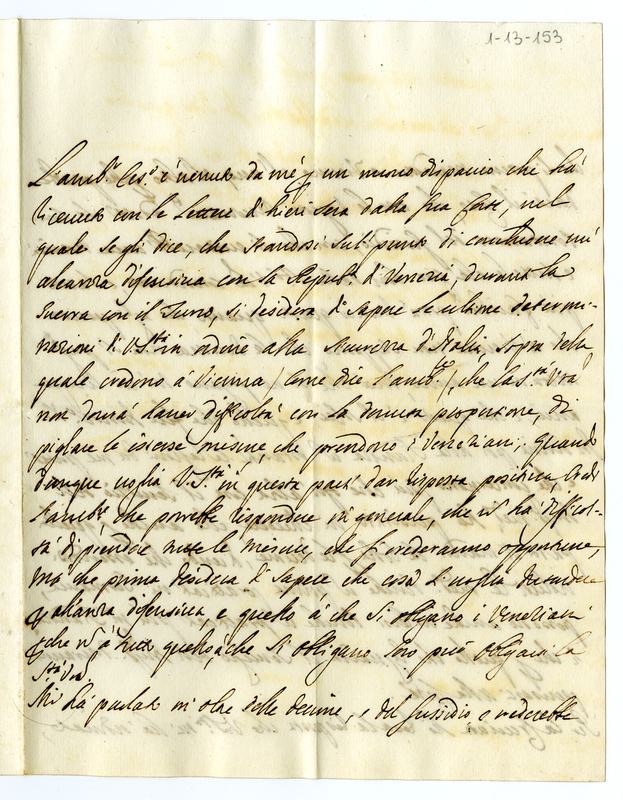 1-13-153
L'amb.r Ces.o è venuto da mè p un nuovo dispaccio che hà
ricevuto con le lettere d'hieri sera dalla sua Corte, nel
quale se gli dice, che standosi sul punto di concludere un'
aleanza difensiva con la Repub.ca di Venezia, durante la
guerra con il Turco, si desidera di sapere le ultime determi-
nazioni di V. S.tà in ordine alla sicurezza d'Italia, sopra della
quale credono à Vienna (come dice l'amb.re), che la S.tà V.ra
non dourà hauer difficoltà con la douuta proportione, di
pigliare le istesse misure, che prendono i Veneziani; quando
dunque voglia V. S.tà in questa parte dar risposta positiva,
l'amb.re, che potrebbe rispondere in generale, che n̄ hà difficol-
tà di prendere tutte le misure, che si crederanno opportune,
mà che prima desidera di sapere che cosa s'voglia intendere
p aleanza difensiva, e quello à che si obligano i Veneziani
p che n̄ à tutto quello, à che si obligano loro può obligarsi la
S.tà V.ra
Mi hà parlato in oltre delle decime, e del sussidio, e vederebbe